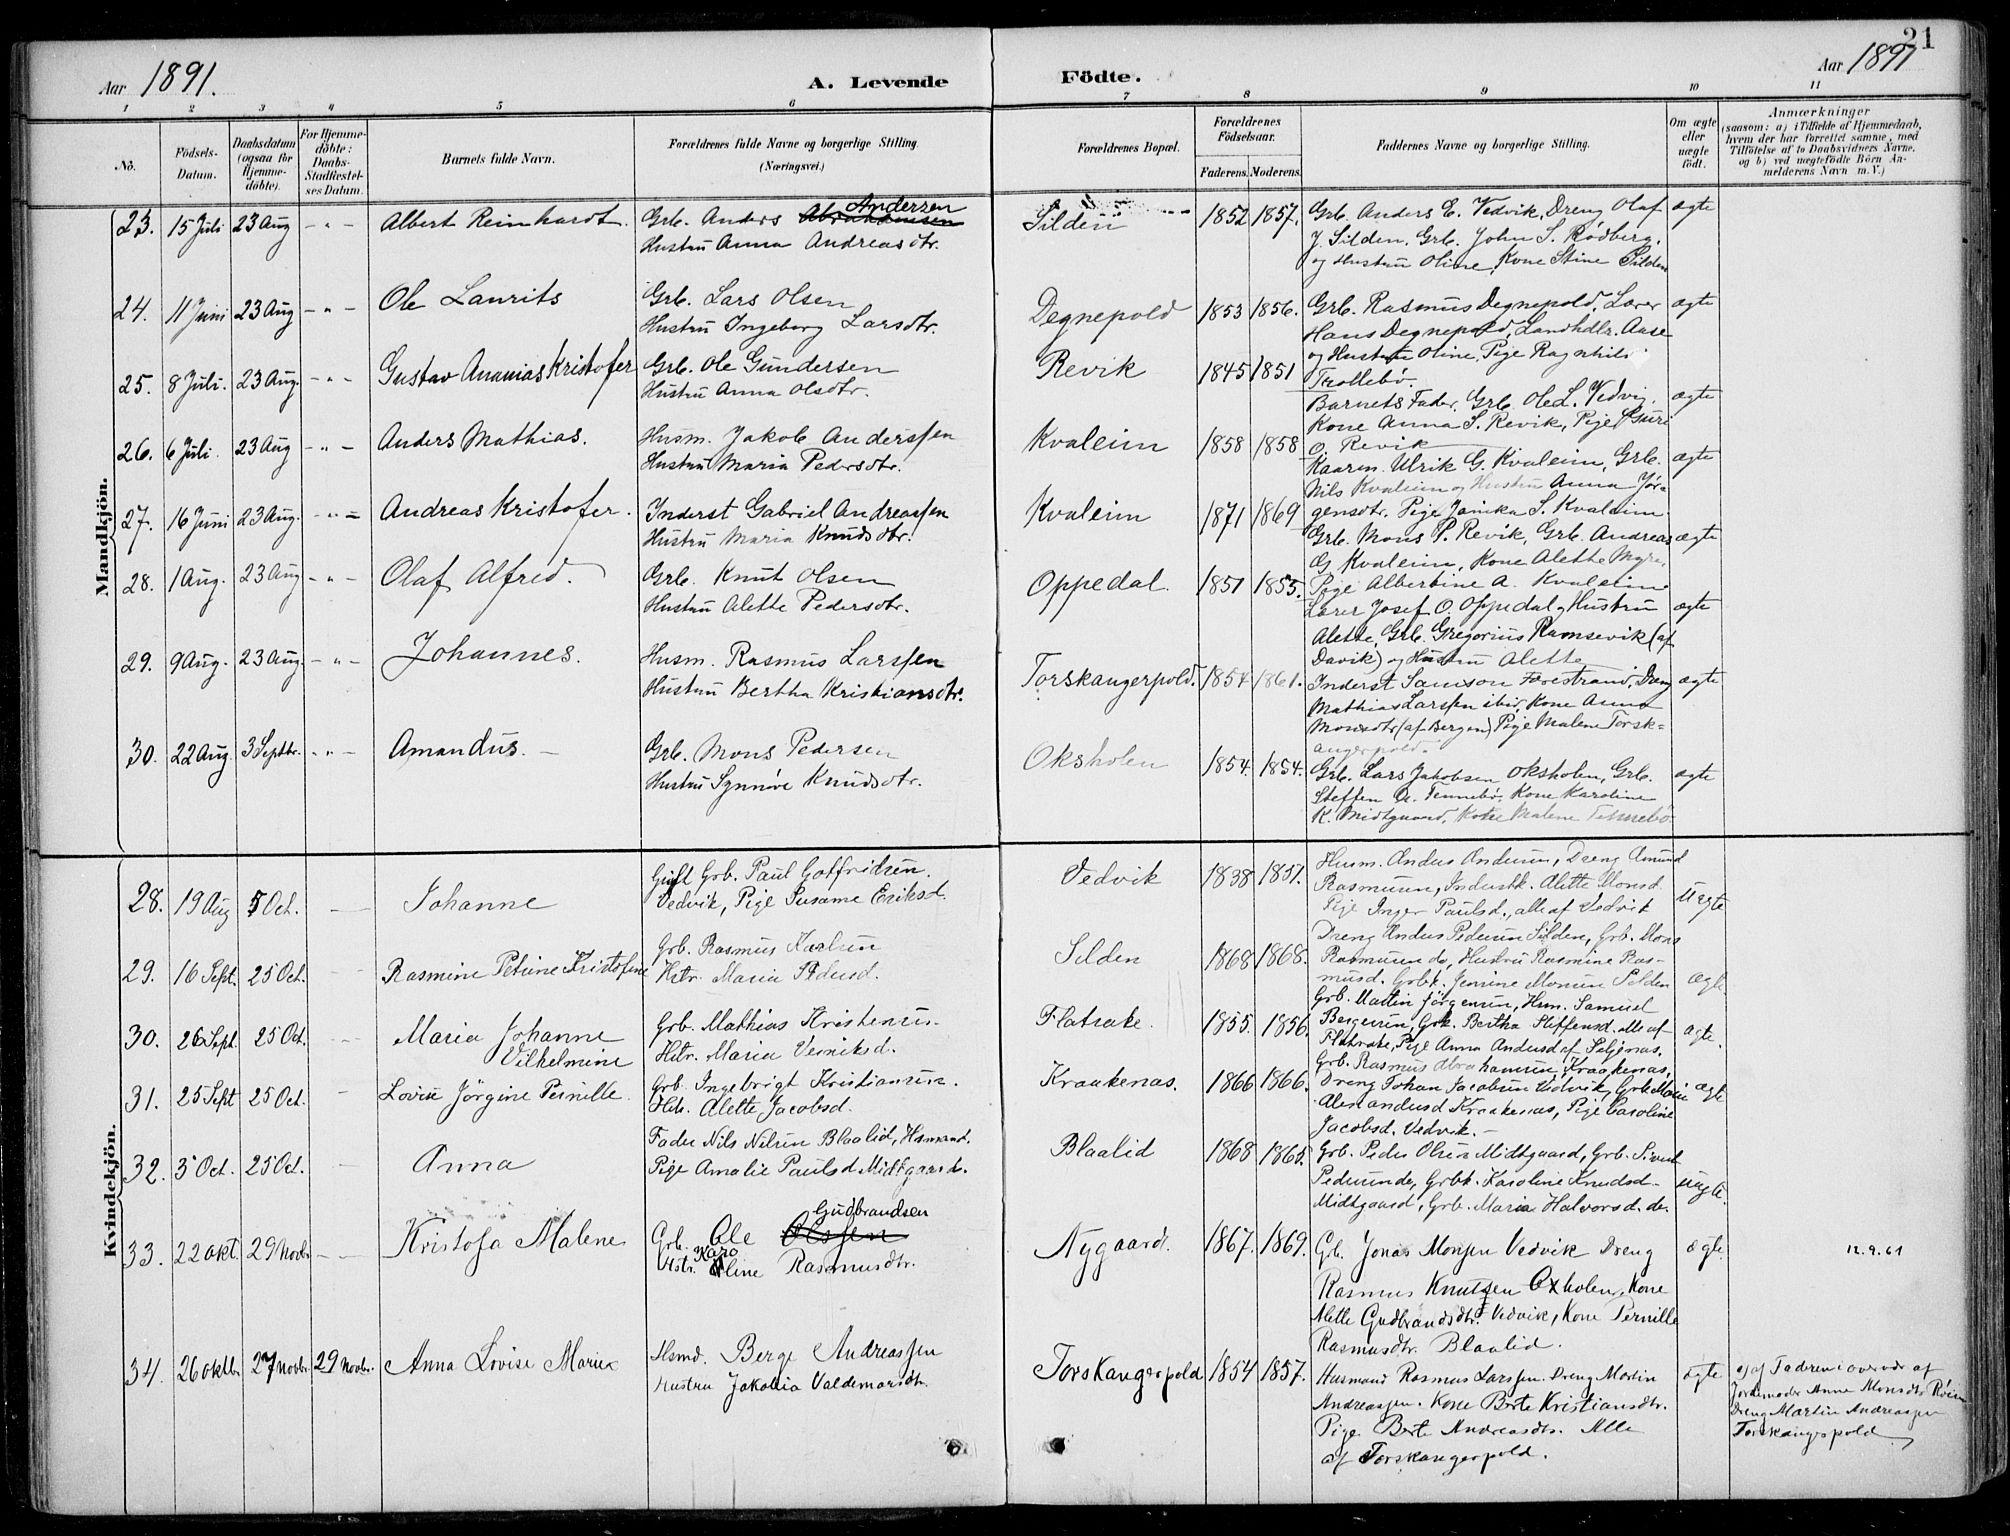 21
Aar 1891. A. Levende Fødte. Aar 1891
1 2 3 4 5 6 7 8 9 10 11
No.
Fødsels-Datum.
Daabsdatum (ogsaa for Hjemmedøbte).
For Hjemmedøbte: Daabs-Stadfæstelses Datum.
Barnets fulde Navn.
Forældrenes fulde Navne og borgerlige Stilling. (Næringsvei.)
Forældrenes Bopæl.
Forældrenes Fødselsaar.
Faderens. Moderens.
Faddernes Navne og borgerlige Stilling.
Om ægte eller uægte født.
Anmærkninger
(saasom: a) i Tilfælde af Hjemmedaab, hvem der har forrettet samme, med Tilføielse af to Daabsvidners Navne, og b) ved uægtefødte Børn Anmelderens Navn m.V.)
Mandkjön.
23. 15 Juli 23 Aug - " - Albert Reinhardt. Grb. Anders Abrahamsen Andersen
Hustru Anna Andreasdtr.
Silden 1852 1857. Grb. Anders E. Vedvik, Dreng Olaf
J. Silden. Grb. John S. Rødberg,
og Hustru Oline, Kone Stine Silden
ægte
24. 11 Juni 23 Aug - " - Ole Laurits Grb. Lars Olsen
Hustru Ingeborg Larsdtr.
Degnepold 1853 1856. Grb. Rasmus Degnepold, Lærer
Hans Degnepold, Landhdlr. Aase
og Hustru Oline, Pige Ragnhild
Trollebø.
ægte
25. 8 Juli. 23 Aug. - " - Gustav Ananias Kristofer Grb. Ole Gundersen
Hustru Anna Olsdtr.
Revik 1845 1851
Barnets Fader, Grb. Ole L. Vedvig,
Kone Anna S. Revik, Pige Guri
O. Revik
ægte
26. 6 Juli. 23 Aug - " - Anders Mathias. Husm. Jakob Anderssen
Hustru Maria Pedersdtr.
Kvaleim 1858 1858
Kaarm. Ulrik G. Kvaleim, Grb.
Nils Kvaleim og Hustru Anna Jør-
gensdtr. Pige Janika S. Kvaleim.
ægte
27. 16 Juni 23 Aug. - " - Andreas Kristofer. Inderst Gabriel Andreassen
Hustru Maria Knudsdtr.
Kvaleim 1871 1869
Grb. Mons P. Revik, Grb. Andreas
G Kvaleim, Kone Alette Myre,
Pige Albertine A. Kvaleim
ægte
28. 1 Aug. 23 Aug - " - Olaf Alfred. Grb. Knut Olsen
Hustru Alette Pedersdtr.
Oppedal. 1851 1855.
Lærer Josef O. Oppedal og Hustru
Alette, Grb. Gregorius Ramsevik (af
Davik) og Hustru Alette
ægte
29. 9 Aug. 23 Aug. - " - Johannes. Husm. Rasmus Larssen
Hustru Bertha Kristiansdtr.
Torskangerpold. 1854 1861.
Inderst Samson Førestrand, Dreng
Mathias Larssen ibid., Kone Anna
Monsdtr (af Bergen) Pige Malene Torsk-
angerpold.
ægte
30. 22 Aug. 3 Septbr. - " - Amandus. Grb. Mons Pedersen
Hustru Synnøve Knudsdtr.
Oksholen 1854. 1854.
Grb. Lars Jakobsen Oksholen, Grb.
Steffen A. Tennebø, Kone Karoline
K. Midtgaard, Kone Malene Tennebø.
ægte
Kvindekjön.
28. 19 Aug 5 Oct. Johanne Gift Grb. Paul Gotfridsen.
Vedvik, Pige Susanne Eriksd.
Vedvik 1838 1851.
Husm. Anders Andersen, Dreng Amund
Rasmussen, Inderstk. Alette Monsd.
Pige Inger Paulsd., alle af Vedvik
Uægte
29. 16 Sept. 25 Oct. Rasmine Petrine Kristofine Grb. Rasmus Karlsen
Hstr. Maria Pedersd.
Silden 1868 1868.
Dreng Anders Pedersen Silden, Grb. Mons
Rasmussen do, Hustru Rasmine Ras-
musd. Grbk. Jensine Monsen Silden
ægte
30. 26 Sept. 25 Oct. Maria Johanne Vilhelmine Grb. Mathias Kristensen
Hstr. Maria Verniksd.
Flatrake. 1855. 1856.
Grb. Martin Jörgensen, Hsm. Samuel
Bergersen, Grk. Bertha Steffensd. alle af
Flatrake, Pige Anna Andersd af Seljenæs.
ægte.
31. 25 Sept 25 Oct. Lovise Jörgine Pernille. Grb. Ingebrigt Kristiansen.
Hstr. Alette Jacobsd.
Kraakenæs. 1866 1866.
Grb. Rasmus Abrahamsen, Kraakenæs,
Dreng Johan Jacobsen Vedvik, Grbk Mari
Alexandersd Kraakenæs, Pige Caroline
Jacobsd. Vedvik.
ægte
32. 5 Oct. 25 Oct. Anna Fader Nils Nilsen Blaalid, Hsmand.
Pige Amalie Paulsd Midtgaard.
Blaalid 1868 1865.
Grb. Peder Olsen Midtgaard, Grb. Sivert
Pedersen do, Grbk. Karoline Knudsd
Midtgaard, Grb. Maria Halvorsd. do.
uægte.
33. 22 Okt. 29 Novbr Kristofa Malene Grb. Ole Olssen Gudbrandsen
Hstr. Karoline Rasmusdtr.
Nygaard. 1867. 1869.
Grb. Jonas Monsen Vedvik Dreng
Rasmus Knutsen Oxholen, Kone
Alette Gudbrandsdtr. Vedvik, Kone Pernille
Rasmusdtr. Blaalid.
ægte.
12.9.61
34. 26 Oktbr 27 Novbr 29 Novbr. Anna Lovise Marie Hsmd. Berge Andreassen
Hustru Jakobia Valdemarsdtr.
Torskangerpold 1854 1857.
Husmand Rasmus Larssen. Dreng Martin
Andreassen. Kone Berte Kristiansdtr.
Pige Berte Andreasdtr. Alle
af Torskangerpold.
ægte
a) af Faderen i overvær af
Jordemoder Anne Monsdtr
Dreng Martin Andreassen
Torskangerpold.